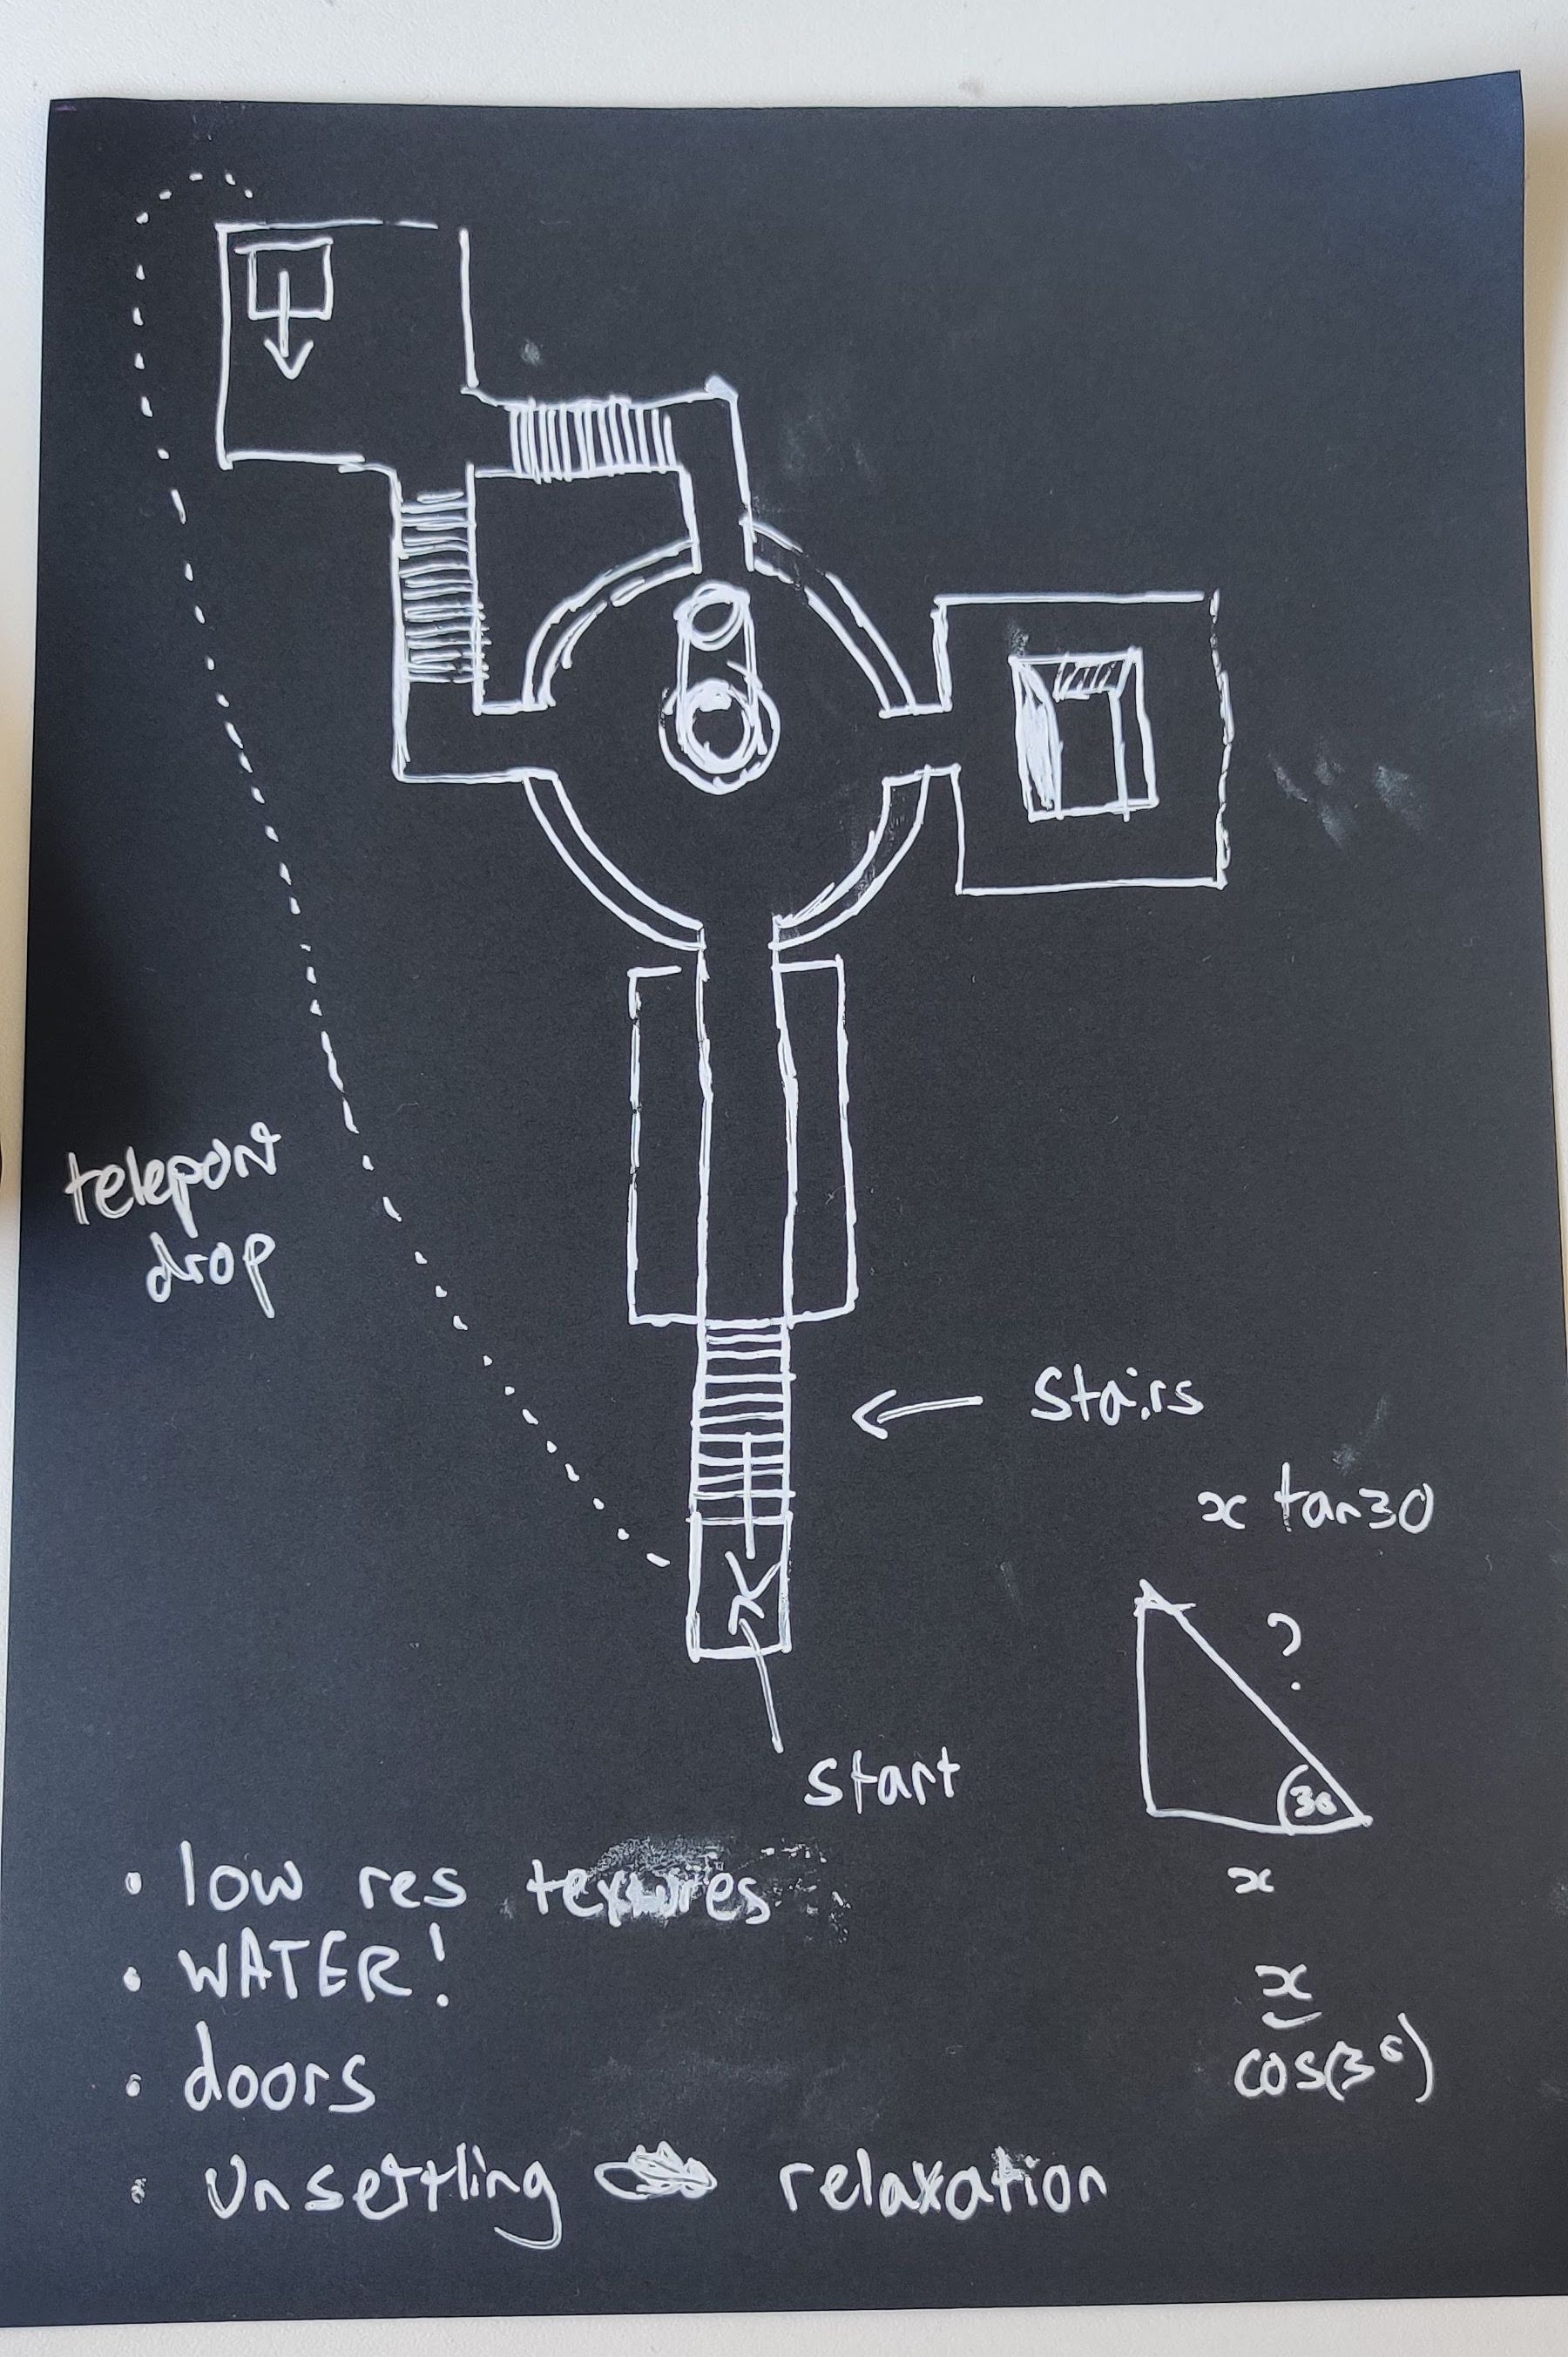 teleport
drop
Stairs
x tan30
?
30
x
start
x
cos(30)
• low res textures
• WATER!
• doors
• Unsettling relaxation